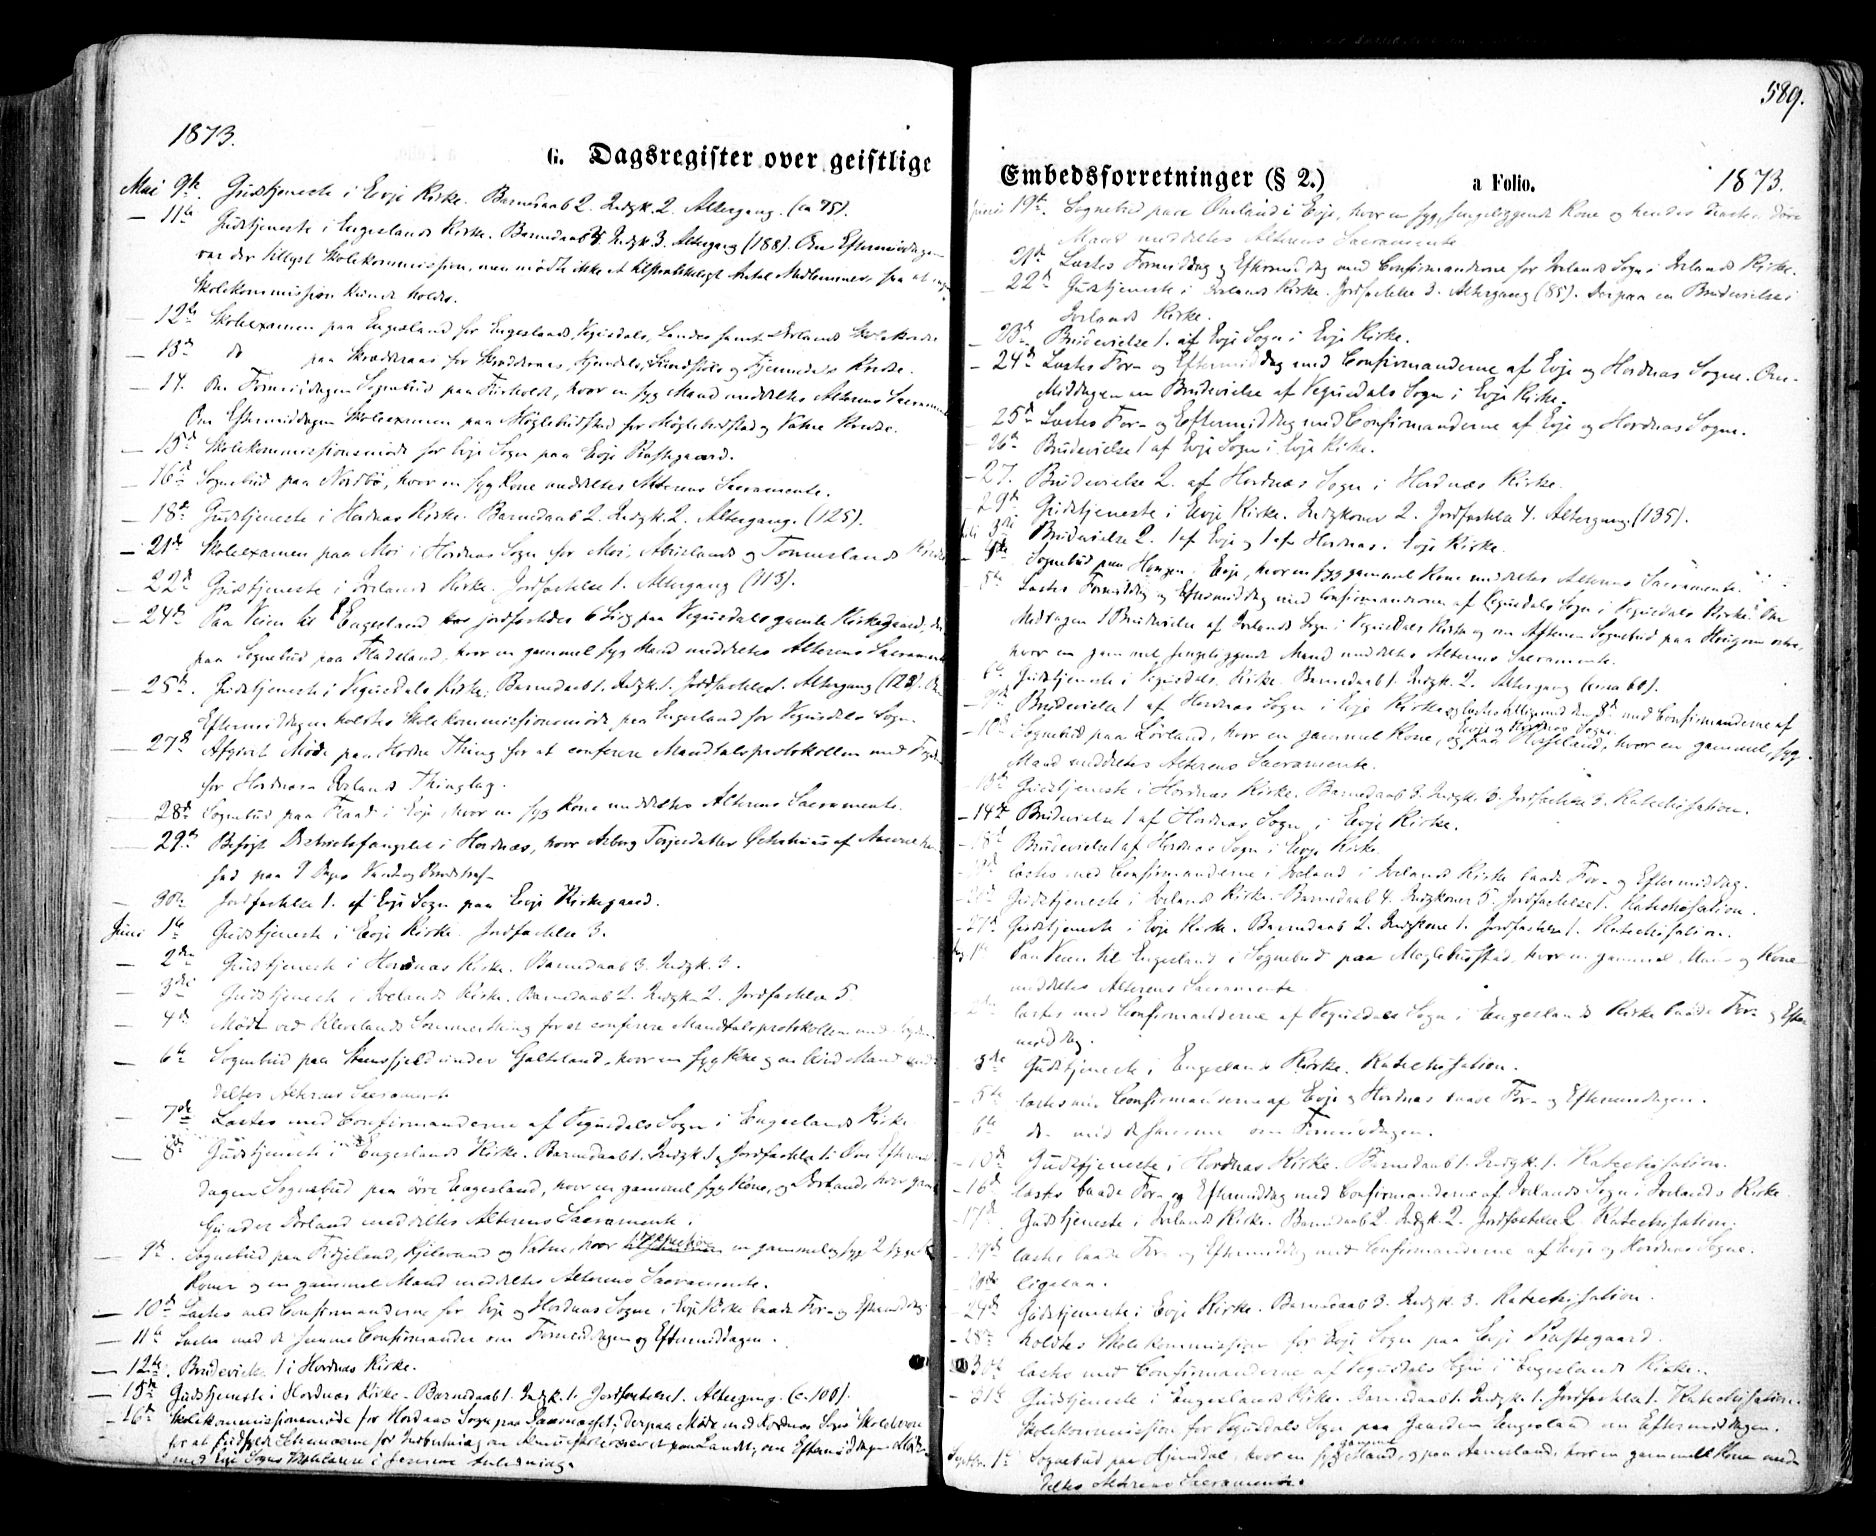 1873.
G. Dagsregister over geistlige
Mai 9de Gudstjeneste i Evje Kirke. Barnedaab 2. Indgk. 2. Altergang. (ca 75).
— 11te Gudstjeneste i Engeslands Kirke. Barnedaab Indgk. 3. Altergang (188). Om Eftermiddagen
var der tillyst Skolekommission, men mødte ikke et tilstrækkeligt Antal Medlemmer, saa at
Skolekommission kunde holdes.
— 12te Skoleexamen paa Engesland for Engeslands, Vegusdals, samt Ivelands Skolekredse
— 13de do paa for Kredse.
— 14. Om Formiddagen Sognebud paa hvor en syg Mand meddeltes Alterens Sacramente
Om Eftermiddagen Skoleexamen paa Møglebustad for Møglebustad og Vatne Kredse.
— 15de Skolekommissionsmøde for Evje Sogn paa Evje Præstegaard.
— 16de Sognebud paa Nordbø, hvor en syg Kone meddeltes Alterens Sacramente.
— 18de Gudstjeneste i Hordnæs Kirke. Barnedaab 2. Indgk. 2. Altergang. (125).
— 21de Skoleexamen paa Moi i Hordnæs Sogn for Moi, Abuslands og Tønneslands Kredse
— 22de Gudstjeneste i Ivelands Kirke. Jordfæstelse 1. Altergang (113).
— 24de Paa Veien til Engesland jordfæstedes 6 Lig paa Vegusdals gamle Kirkegaard,
paa Sognebud paa Fladeland, hvor en gammel syg Mand meddeltes Alterens Sacramente
— 25de. Gudstjeneste i Vegusdals Kirke; Barnedaab 1. Indgk. 1. Jordfæstelse 1. Altergang
Eftermiddagen holdtes Skolekommissionsmøde paa Engesland for Vegusdals Sogn
— 27de Afgivet Møde paa Thing for at conferere Mandtalsprotokollen med
for Hordnæs Ivelands Thinglag.
— 28de Sognebud paa Flaat i Evje, hvor en syg Kone meddeltes Alterens Sacramente.
— 29de Besøgt Distriktsfængslet i Hordnæs, hvor Asborg Torjesdatter
sad paa Vand og Brød
— 30te Jordfæstelse 1. af Evje Sogn paa Evje Kirkegaard.
Juni 1te Gudstjeneste i Evje Kirke. Jordfæstelse 3.
— 2den Gudstjeneste i Hordnæs Kirke. Barnedaab 3. Indgk. 3.
— 3die Gudstjeneste i Ivelands Kirke. Barnedaab 2. Indgk. 2. Jordfæstelse 5.
— 4de Mødt ved Klevelands Sommerthing for at conferere Mandtalsprotokollen med
— 6te Sognebud paa under Galteland, hvor en syg Kone og en Mand
deltes Alterens Sacramente
— 7de Læstes med Confirmanderne af Vegusdals Sogn i Engeslands Kirke
— 8de Gudstjeneste i Engeslands Kirke. Barnedaab 1. Indgk. 1. Jordfæstelse 1. Om Eftermid-
dagen Sognebud paa Øvre Engesland, hvor en gammel syg Kone, og
Iveland meddeltes Alterens Sacramente.
— 9de. Sognebud paa og Vatne, hvor en gammel syg
Koner og en gammel Mand meddeltes Alterens Sacramente.
— 10de Læstes med Confirmanderne for Evje og Hordnæs Sogne i Evje Kirke baade For- og Eftermiddag
— 11te Læstes med de samme Confirmander om Formiddagen og Eftermiddagen.
— 12te. Brudevielse 1 i Hordnæs Kirke.
— 15de Gudstjeneste i Hordnæs Kirke. Barnedaab 1. Indgk. 1. Jordfæstelse 1. Altergang. (c. 100).
— 16de Skolekommissionsmøde for Hordnæs Sogn paa derpaa Møde med Hordnæs Sogns Skolelærere
for at Schemaerne for Indberetning om Almueskolevæsenet paa Landet, om Eftermiddagen Møde
med Evje Sogns Skolelærere i samme Anledning.
589.
Embedsforretninger (§ 2.)
a Folio.
1873.
Juni 19de. Sognebud paa i Evje, hvor en syg, sengeliggende Kone og hendes
Mand meddeltes Alterens Sacramente
— 21de Læstes Formiddag og Eftermiddag med Confirmanderne for Ivelands Sogn i Ivelands Kirke.
— 22de Gudstjeneste i Ivelands Kirke. Jordfæstelse 3. Altergang (85). Derpaa en Brudevielse i
Ivelands Kirke.
— 23de Brudevielse 1. af Evje Sogn i Evje Kirke.
— 24de Læstes For- og Eftermiddag med Confirmanderne af Evje og Hordnæs Sogne. Om
Middagen en Brudevielse af Vegusdals Sogn i Evje Kirke.
— 25de Læstes For- og Eftermiddag med Confirmanderne af Evje og Hordnæs Sogne.
— 26de Brudevielse 1 af Evje Sogn i Evje Kirke.
— 27. Brudevielse 2. af Hordnæs Sogn i Hordnæs Kirke.
29de Gudstjeneste i Evje Kirke. Indgkoner 2. Jordfæstelse 4. Altergang. (135).
Juli 3die Brudevielse 2. 1 af Evje og 1 af Hordnæs i Evje Kirke.
— 4de Sognebud paa i Evje, hvor en syg gammel Kone meddeltes Alterens Sacramente.
— 5te Læstes Formiddag og Eftermiddag med Confirmanderne af Vegusdals Sogn i Vegusdals Kirke. Om
Middagen 1 Brudevielse af Ivelands Sogn i Vegusdals Kirke og om Aftenen Sognebud paa
hvor en gammel sengeliggende Mand meddeltes Alterens Sacramente.
6te Gudstjeneste i Vegusdals Kirke. Barnedaab 1. Indgk. 2. Altergang (circa 60).
— 9de Brudevielse 1 af Hordnæs Sogn i Evje Kirke og læstes med Confirmanderne af
Evje og Hordnæs Sogne.
— 10de Sognebud paa Lörland, hvor en gammel Kone, og paa hvor en gammel, syg
Mand meddeltes Alterens Sacramente.
— 13de Gudstjeneste i Hordnæs Kirke. Barnedaab 3. Indgk. 3. Jordfæstelse 3. Katechisation.
— 14de Brudevielse 1 af Hordnæs Sogn i Evje Kirke.
— 18de Brudevielse 1 af Hordnæs Sogn i Evje Kirke.
læstes med Confirmanderne i Iveland i Ivelands Kirke baade For- og Eftermiddag.
— 20de Gudstjeneste i Ivelands Kirke. Barnedaab 4. Indgkoner 5. Jordfæstelse 1. Katechisation.
— 27de Gudstjeneste i Evje Kirke. Barnedaab 2. Indgkone 1. Jordfæstelse 1. Katechisation.
Aug. 1te Paa Veien til Engesland i Sognebud paa Møglebustad, hvor en gammel Mand og Kone
meddeltes Alterens Sacramente.
2den læstes med Confirmanderne af Vegusdals Sogn i Engeslands Kirke baade For- og Efter-
middag.
— 3die Gudstjeneste i Engeslands Kirke. Katechisation.
— 5te læstes med Confirmanderne af Evje og Hordnæs baade For- og Eftermiddagen.
6te do med de samme om Formiddagen.
— 10de Gudstjeneste i Hordnæs Kirke. Barnedaab 1. Indgk. 1. Katechisation.
— 16de læstes baade For- og Eftermiddag med Confirmanderne af Ivelands Sogn i Ivelands Kirke.
— 17de Gudstjeneste i Ivelands Kirke. Barnedaab 2. Indgk. 2. Jordfæstelse 2. Katechisation.
— 19de læstes baade For- og Eftermiddag med Confirmanderne af Evje og Hordnæs Sogne.
— 20de ligesaa.
— 24de Gudstjeneste i Evje Kirke. Barnedaab 3. Indgk. 3. Katechisation.
— 28de holdtes Skolekommission for Evje Sogn paa Evje Præstegaard.
— 30te læstes med Confirmanderne af Vegusdals Sogn i Engeslands Kirke.
— 31te Gudstjeneste i Engeslands Kirke. Barnedaab 1. Indgk. 1. Jordfæstelse 1. Katechisation.
Skolekommission for Vegusdals Sogn paa Gaarden Engesland om Eftermiddagen.
Septbr. 1te Sognebud paa Hjemdal, hvor en syg gammel Mand, og paa Aaneslands, hvor en gammel Kone med-
deltes Alterens Sacramente.